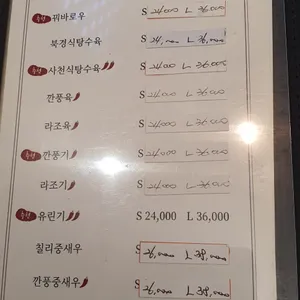 추천 꿔바로우 S 24,000 L 36,000
북경식탕수육 S 24,000 L 36,000
추천 사천식탕수육 S 24,000 L 36,000
깐풍육 S 24,000 L 36,000
라조육 S 24,000 L 36,000
추천 깐풍기 S 24,000 L 36,000
라조기 S 24,000 L 36,000
추천 유린기 S 24,000 L 36,000
칠리중새우 S 26,000 L 38,000
깐풍중새우 S 26,000 L 38,000